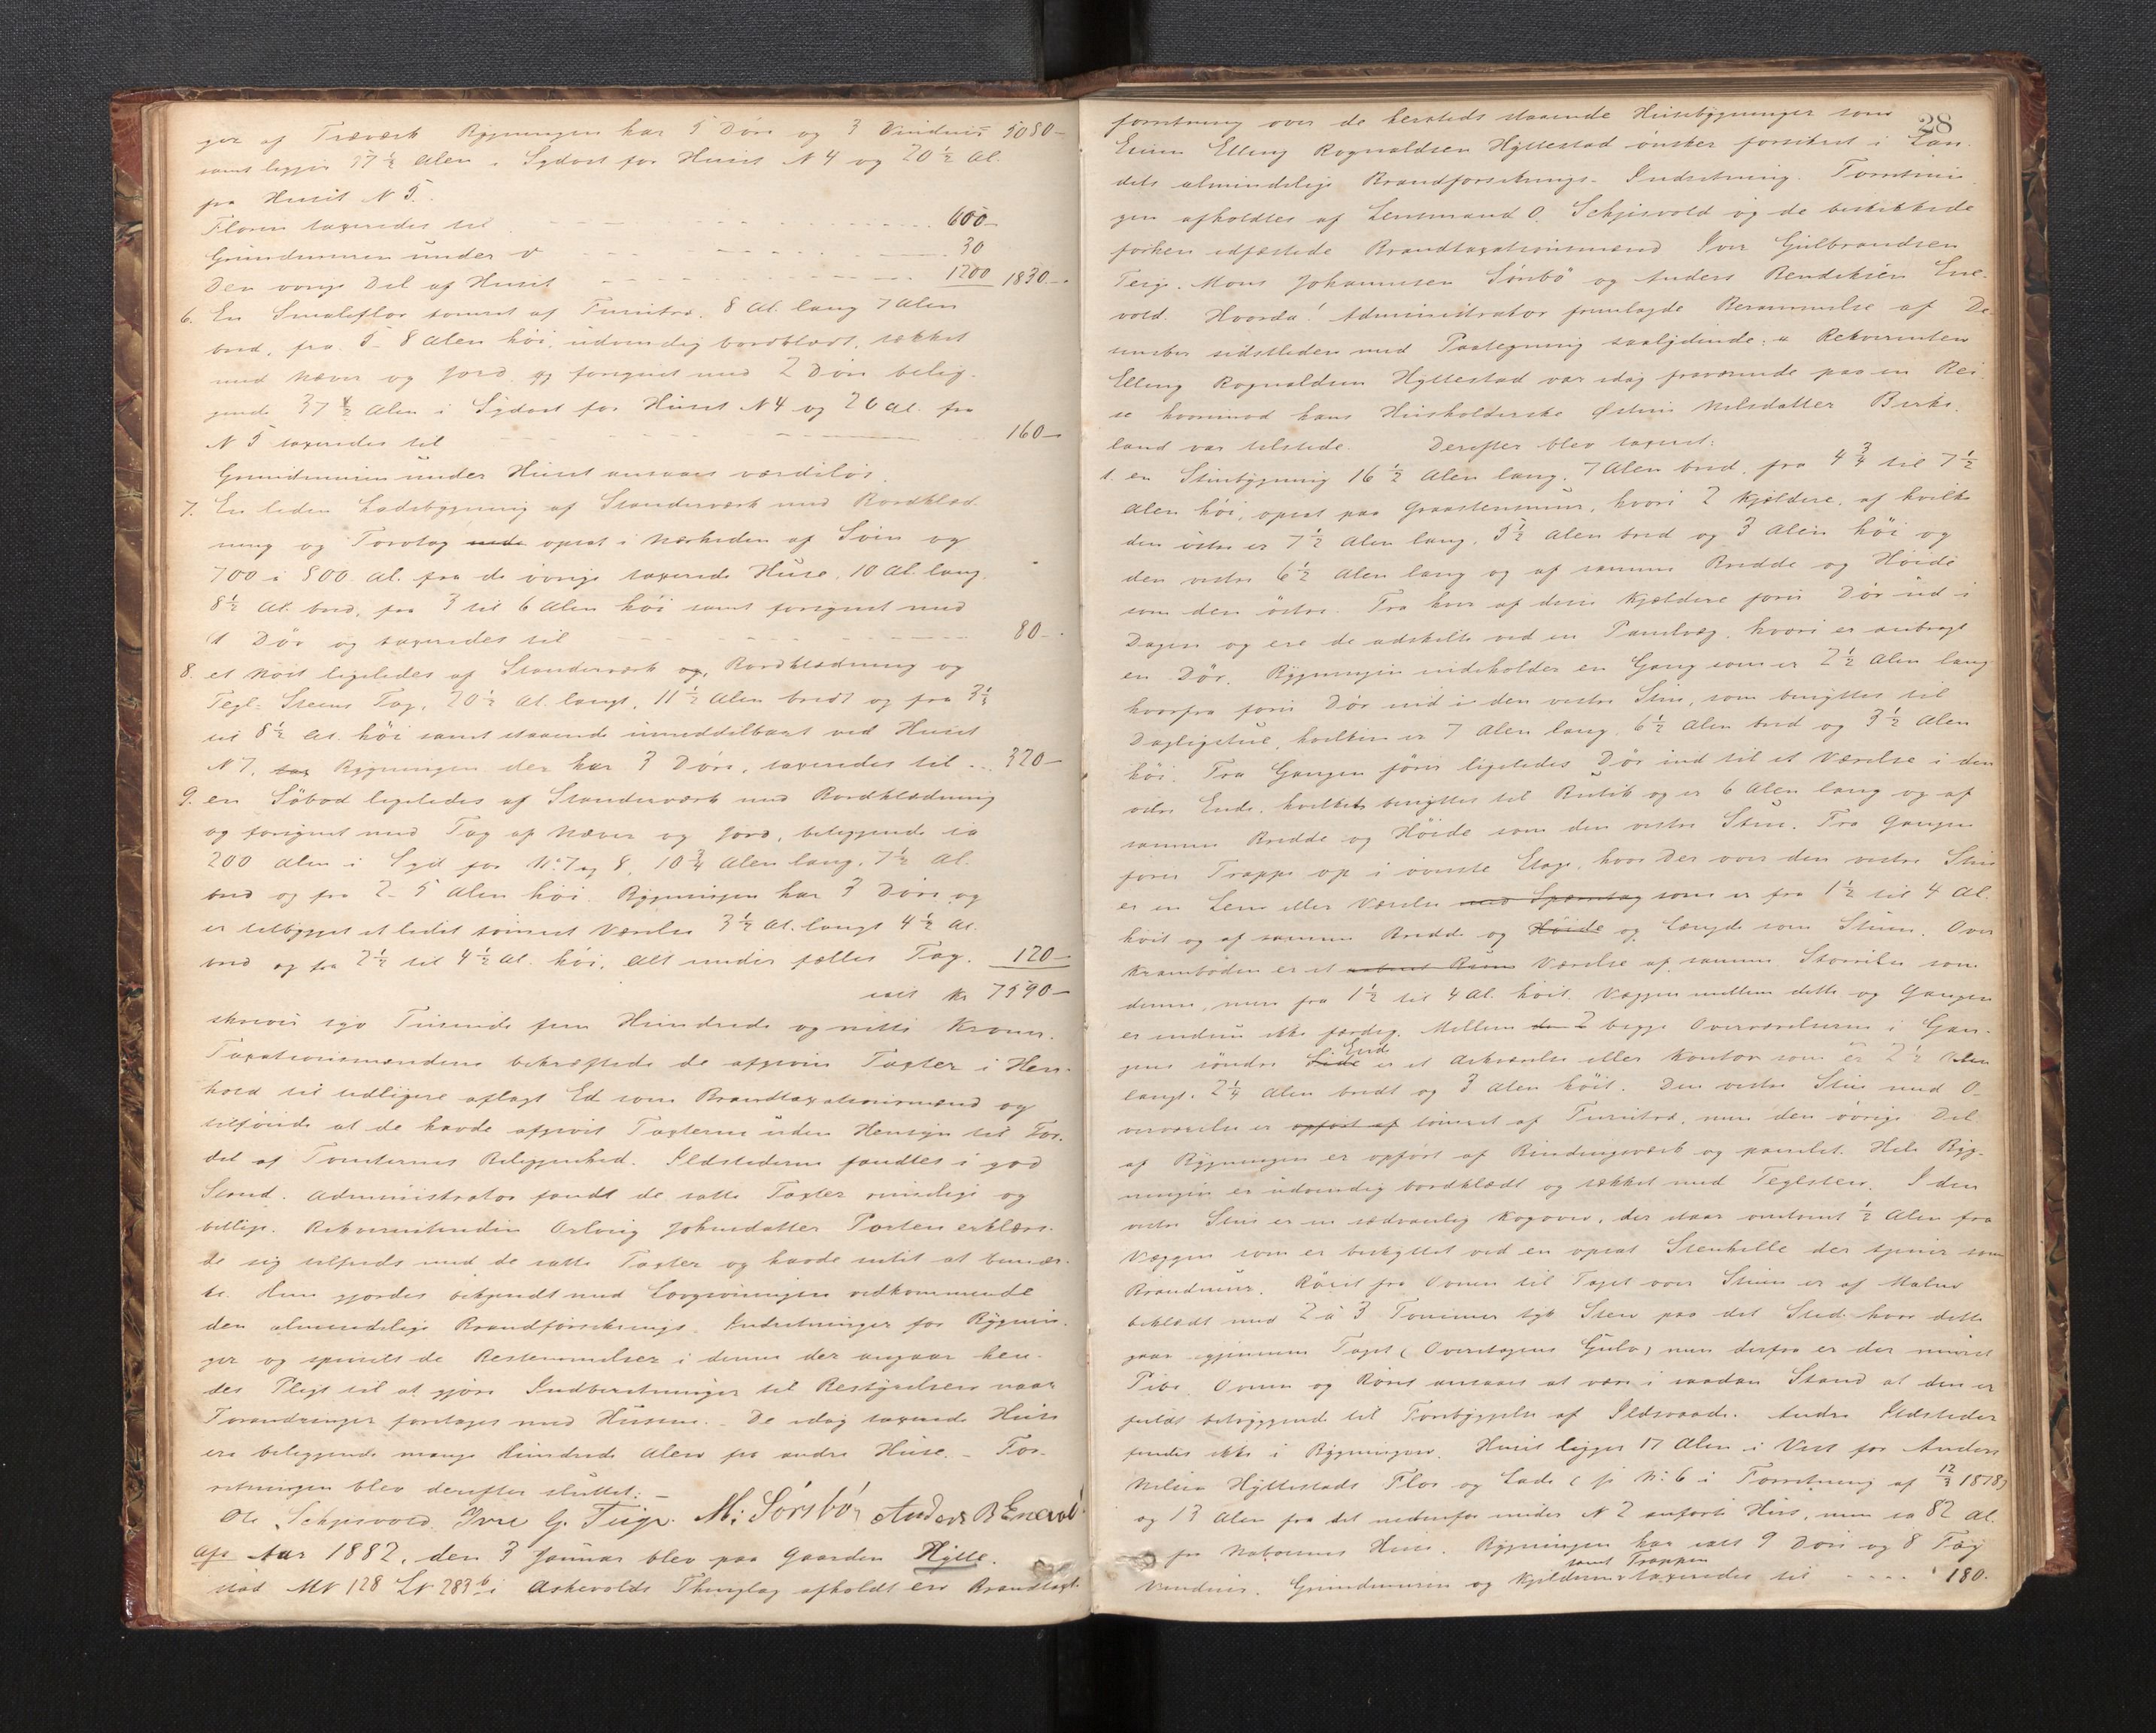 ger af Træværk Bygningen har 5 Döre og 3 Vinduer 5080-
samt ligger 57 1/2 Alen i Sydost for Huset N 4 og 20 1/2 Al.
fra Huset N 5.
Floren taxeredes til 600-
Grundmuren under do 30
Den övrige Del af Huset 1200 1830-
6. En Smaleflor tömret af Furutræ, 8 Al. lang 7 Alen
bred, fra 5-8 Alen höi, udvendig bordklædt, tækket
med Næver og Jord og forsynet med 2 Döre belig-
gende 37 1/2 Alen i Sydost for Huset N 4 og 26 Al. fra
N 5 taxeredes til 160-
Grundmuren under Huset ansaaes værdilös.
7. En liden Ladebygning af Standerværk med Bordklæd-
ning og Torvtag opsat i Nærheden af Söen og
700 à 800 Al. fra de övrige taxerede Huse, 10 Al. lang,
8 1/2 Al. bred, fra 3 til 6 Alen höi samt forsynet med
1 Dör og taxeredes til 80-
8. et Nöst ligeledes af Standerværk og Bordklædning og
Tegl-Steens Tag, 20 1/2 Al. langt, 11 1/2 Alen bredt og fra 3 1/2
til 8 1/2 Al. höi samt staaende umiddelbart ved Huset
N 7, tax Bygningen der har 3 Döre, taxeredes til 320-
9. en Söbod ligeledes af Standerværk med Bordklædning
og forsynet med Tag af Næver og Jord, beliggende ca
200 Alen i Syd for No 7 og 8, 10 3/4 Alen lang, 7 1/2 Al.
bred og fra 2-5 Alen höi. Bygningen har 3 Döre og
er tilbygget et lidet tömret Værelse 3 1/2 Al. langt 4 1/2 Al.
bred og fra 2 1/2 til 4 1/2 Al. höi. Alt under fælles Tag. 120-
ialt Kr 7590-
skriver syv Tusinde fem Hundrede og nitti Kroner.
Taxationsmændene bekræftede de afgivne Taxter i Hen-
hold til tidligere aflagt Ed som Brandtaxationsmænd og
tilföiede at de havde afgivet Taxterne uden Hensyn til For-
del af Tomternes Beliggenhed. Ildstederne fandtes i god
Stand. Administrator fandt de satte Taxter rimelige og
billige. Rekvirentinden Johnsdatter Porten erklære-
de sig tilfreds med de satte Taxter og havde intet at bemær-
ke. Hun gjordes bekjendt med Lovgivningen vedkommende
den almindelige Brandforsikrings-Indretninger for Bygnin-
ger og specielt de Bestemmelser i denne der angaar hen-
des Pligt til at gjöre Indberetninger til Bestyrelsen naar
Forandringer foretages med Husene. De idag taxerede Huse
ere beliggende mange Hundrede Alen fra andre Huse. For-
retningen blev derefter sluttet.
Ole Schjesvold Iver G. Teige. M: Sörsbö, Anders B Enevold
Aar 1882, den 3 Januar blev paa Gaarden Hylle-
stad MN 128 LN 283 b i Askevolds Thinglag afholdt en Brandtaxt-
28
forretning over de hersteds staaende Husebygninger som
Eieren Elling Rognaldsen Hyllestad önsker forsikret i Lan-
dets almindelige Brandforsikrings-Indretning. Forretnin-
gen afholdtes af Lensmand O. Schjesvold og de beskikkede
forhen edfæstede Brandtaxationsmænd Iver Gulbrandsen
Teige, Mons Johannesen Sörsbö og Anders Bendiksen Ene-
vold. Hvorda! Administrator fremlagde Berammelse af De-
cember sidstleden med Paategning saalydende: " Rekvirenten
Elling Rognaldsen Hyllestad var idag fraværende paa en Rei-
se hvorimod hans Husholderske Nilsdatter Birke-
land var tilstede. Derefter blev taxeret:
1. en Stuebygning 16 1/2 Alen lang, 7 Alen bred, fra 4 3/4 til 7 1/2
Alen höi, opsat paa Graastensmuur, hvori 2 Kjældere, af hvilke
den östre er 7 1/2 Alen lang, 5 1/2 Alen bred og 3 Alen höi og
den vestre 6 1/2 Alen lang og af samme Bredde og Höide
som den östre. Fra hver af disse Kjældere förer Dör ud i
Dagen og ere de adskilte ved en Panelvæg, hvori er anbragt
en Dör. Bygningen indeholder en Gang som er 2 1/2 Alen lang
hvorfra förer Dör ind i den vestre Stue, som benyttes til
Dagligstue, hvilken er 7 Alen lang, 6 1/2 Alen bred og 3 1/2 Alen
höi. Fra Gangen förer ligeledes Dör ind til et Værelse i den
östre Ende, hvilket benyttes til Butik og er 6 Alen lang og af
samme Bredde og Höide som den vestre Stue. Fra Gangen
förer Trappe op i överste Etage, hvor der over den vestre Stue
er en Lem eller Værelse med Spærretag som er fra 1 1/2 til 4 Al.
höit og af samme Bredde og Höide og Længde som Stuen. Over
Kramboden er et aabent Rum Værelse af samme Störrelse som
denne, men fra 1 1/2 til 4 Al. höit. Væggen mellem dette og Gangen
er endnu ikke færdig. Mellem de 2 begge Overværelserne i Gan-
gens söndre Side Ende er et Arkværelse eller Kontor som er 2 1/2 Alen
langt, 2 1/4 Alen bredt og 3 Alen höit. Den vestre Stue med O-
verværelse er opfört af tömret af Furutræ, men den övrige Del
af Bygningen er opfört af Bindingsværk og panelet. Hele Byg-
ningen er udvendig bordklædt og tækket med Teglsten. I den
vestre Stue er en sædvanlig Kogeovn, der staar omtrent 1/2 Alen fra
Væggen som er beskyttet ved en opsat Stenhelle der tjener som
Brandmuur. Röret fra Ovnen til Taget over Stuen er af Malm
beklædt med 2 à 3 Tommer tyk Sten paa det Sted hvor dette
gaar igjennem Taget (Overetagens Gulv) men derfra er der muret
Pibe. Ovnen og Röret ansaaes at være i saadan Stand at den er
fuldt betryggende til Forebyggelse af Ildsvaade. Andre Ildsteder
findes ikke i Bygningen. Huset ligger 17 Alen i Vest for Anders
Nilsen Hyllestads Flor og Lade (jr No: 6 i Forretning af 12/3 1878)
og 13 Alen fra det nedenfor under N 2 anförte Hus, men ca 82 Al.
fra Naboernes Huse. Bygningen har ialt 9 Döre og 8 Fag
Vinduer. Grundmuren og Kjelderen samt Trappen taxeredes til 180.